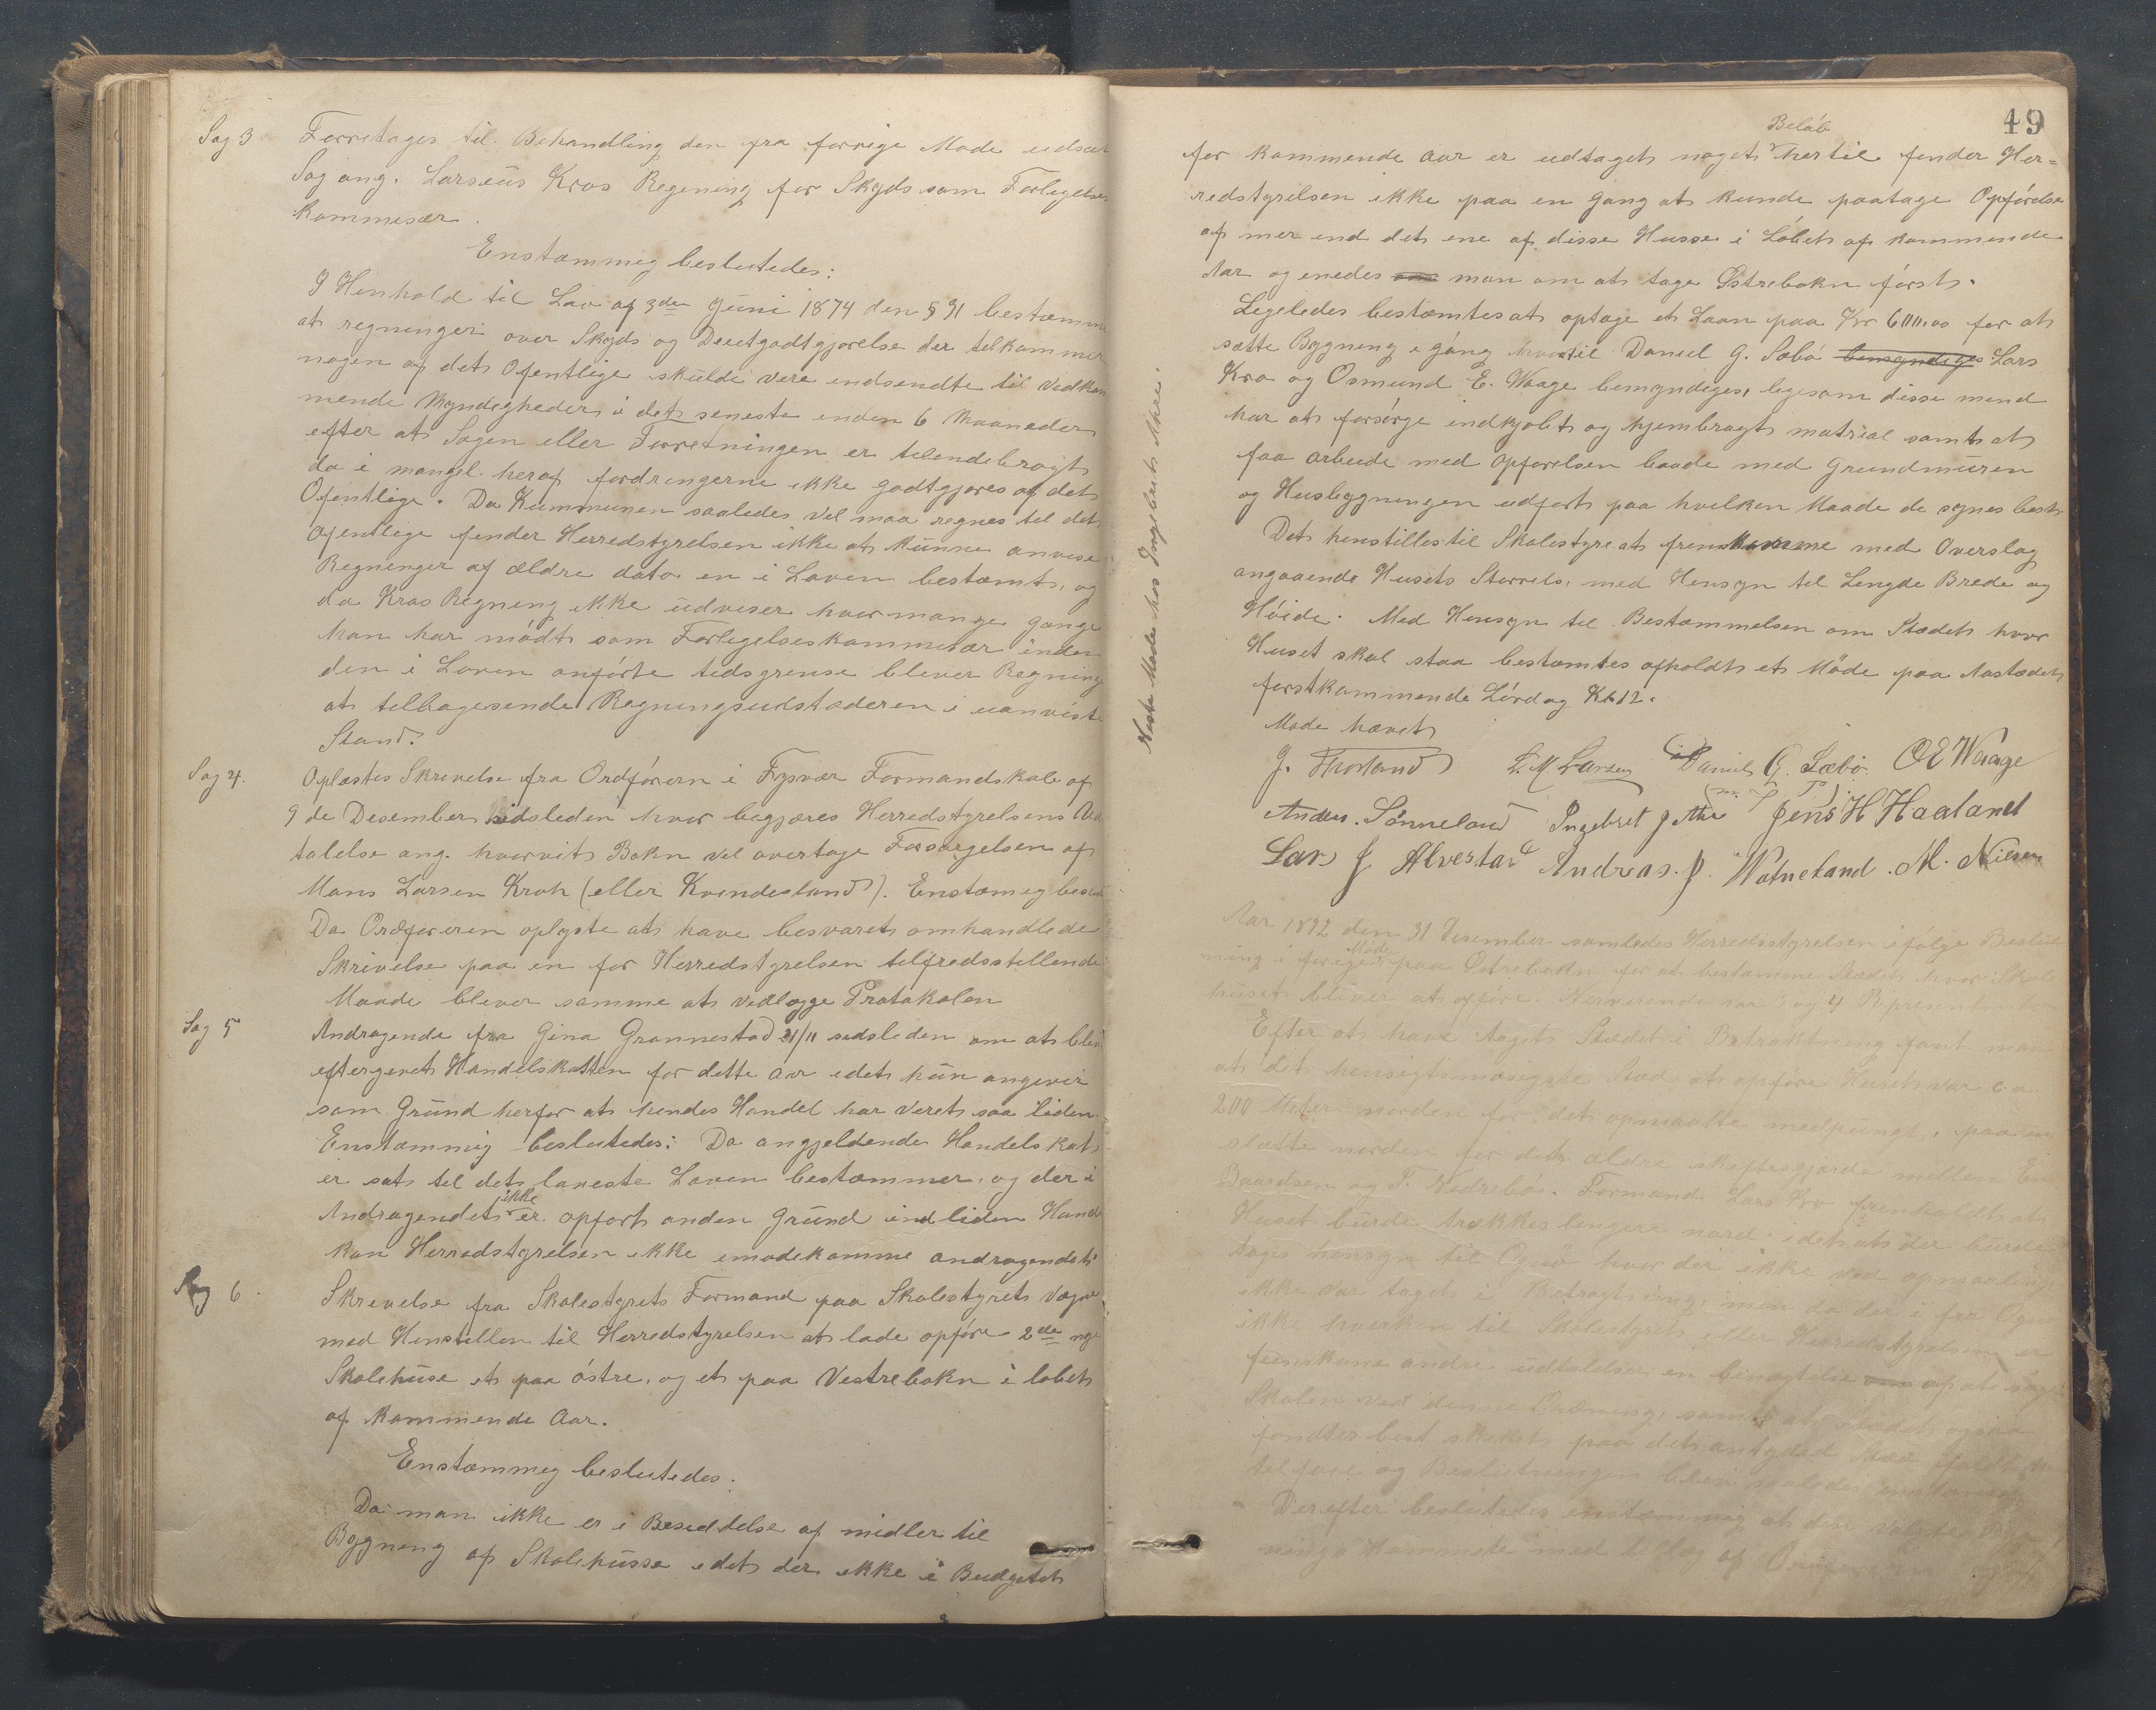 Sag 3 Forretages til Behandling den fra forrige Mode udsat
Sag ang. Larseus Kros Regning for Skyds som Forligelses
Kommisær.
Enstammig beslutedes:
I Henhold til Lav af 3de Juni 1874 den § 91 bestemmes
at regninger over Skyds og Deietgodtgjorelse der tilkommer
nogen af det Ofentlige skulde vere indsendte til vedkom
mende Myndigheder i det seneste inden 6 Maaneder
efter at Sagen eller Forretningen er tilendebragt
da i mangel heraf fordringerne ikke godtgjores af det
Ofentlige. Da Kummunen saaledes vel maa regnes til det
ofentlige finder Herredstyrelsen ikke at kunne anvise
Regninger af ældre dato en i Loven bestemt, og
da Kros Regning ikke udviser hvor mange gange
han har mødt som Forligelseskommisær inden
den i Loven anførte tidsgrense bliver Regning
at tilbagesende Regningsudstæderen i uanvist
Stand.
Sag 4. Oplæstes Skrivelse fra Ordføreren i Tysvær Formandskab af
9de Desember sidsleden hvor begjæres Herredstyrelsens Ud
talelse ang. hvorvit Bokn vil overtage Forsørgelsen af
Mons Larsen Kroh (eller Kvindesland). Enstæmig beslut
Da Ordføreren oplyste at have besvaret omhandlede
Skrivelse paa en for Herredstyrelsen tilfredsstillende
Maade bliver samme at vedlægge Protokolen
Sag 5 Andragende fra Gina Grønnestad 21/11 sidsleden om at blive
eftergivet Handelskatten for dette Aar idet hun angiver
som Grund herfor at hendes Handel har veret saa liden.
Enstammig beslutedes: Da angjeldende Handelskat
er sat til det laveste Loven bestemmer, og der i
Andragendet ikke er opført anden Grund end liden Hand
kan Herredstyrelsen ikke imødekomme andragendet
Sag 6. Skrivelse fra Skolestyrets Formand paa Skolestyrets Vegne
med Henstillen til Herredstyrelsen at lade opføre 2de nye
Skolehuse et paa østre, og et paa Vestrebokn i løbet
af kommende Aar.
Enstammig beslutedes:
Da man ikke er i Besiddelse af midler til
Bygning af Skolehusse idet der ikke i Budgetet
49
Beløb
for kommende Aar er udtaget noget hertil finder Her=
redstyrelsen ikke paa en Gang at kunde paatage Opførelse
af mer end det ene af disse Husse i Løbet af kommende
Aar og enedes man om at tage Østrebokn først.
Ligeledes bestemtes at optage et Laan paa Kr 600.00 for at
sætte Bygning i gang hvortil Daniel G. Sæbø bemyndiges Lars
Kro og Osmund E. Waage bemyndiges, ligesom disse mend
har at forsørge indkjøbt og hjembragt matrial samt at
faa arbeide med opførelsen baade med Grundmuren
og Husbygningen udført paa hvilken Maade de synes best.
Det henstilles til Skolestyre at fremkomme med Overslag
angaaende Husets Størrels, med Hensyn til Lengde Brede og
Høide. Med Hensyn til Bestemmelsen om Stædet hvor
Huset skal staa bestemtes afholdt et Møde paa Aastædet
førstkommende Lørdag Kl 12.
Møde hævet
J. Thorland L. M. Larsen Daniel G. Sæbø OE Waage
Anders. Sønneland Ingebret J Are Jens H Haaland
Lars J Alvestad Andreas. J. Watneland. M. Nilsen
Neste Møde hos Ingebret Are.
Aar 1892 den 31 Desember samledes Herredsstyrelsen ifølge Beslut
ning i forige Møde paa Østrebokn for at bestemme Stædet hvor Skole
huset bliver at opføre. Nerverende var 3 og 4 Representanter
Efter at have taget Stædet i Betraktning fant man
at det hensigtsmæsigste Stæd at opføre Huset var c.a.
200 Meter norden for det opmaalte medpungt, paa en
slætte norden for dette ældre skiftesgjærde mellem
Baardsen og T. Vedrebø. Formand Lars Kro fremholdt at
Huset burde trækkes lengere nord idet at der burde
tages hensyn til Ognø hvor der ikke ved opmaaling
ikke var taget i Betragtning, men da der i fra Ognø
ikke hverken til Skolestyret Herredstyrelsen er
fremkomne andre udtalelser en af at søge
Skolen ved denne Ordning, samt at Stædet
fandtes best skikket paa det antyded
og Beslutningen blev saaledes enstammig
Derefter beslutedes enstammig at den
med